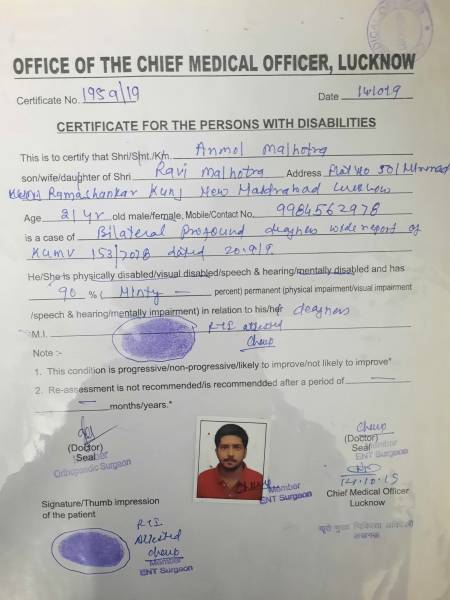 OFFICE OF THE CHIEF MEDICAL OFFICER, LUCKNOW
Certificate No. 1959/19 Date
CERTIFICATE FOR THE PERSONS WITH DISABILITIES
This is to certify that Shri/Smt./Km. Anmol Malhotra
son/wife/daughter of Shri Ravi Malhotra Address Plat No 50/
Ramashankar Kunj New Lucknow
Age 21 yr old male/female, Mobile/Contact No. 9984562978
is a case of Bilateral Profound deafness wide report of
KGMU dated
He/She is physically disabled/visual disabled/speech & hearing/mentally disabled and has
90 % ( Ninty — percent) permanent (physical impairment/visual impairment
/speech & hearing/mentally impairment) in relation to his/her deafness
M.I.
RTI attested
Note :-
1. This condition is progressive/non-progressive/likely to improve/not likely to improve*
2. Re-assessment is not recommended/is recommendded after a period of —
— months/years.*
(Doctor)
Seal
Member
Orthopaedic Surgeon
Member
ENT Surgeon
(Doctor)
Seal
Member
ENT Surgeon
14.10.19
Chief Medical Officer
Lucknow
मुख्य चिकित्सा अधिकारी
लखनऊ
Signature/Thumb impression
of the patient
RTI
Attested
Member
ENT Surgeon